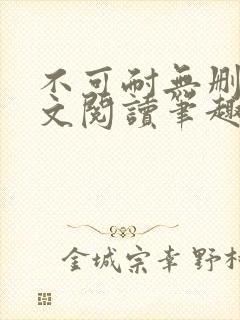 不可耐無刪
文閱讀筆趣
金城宗幸野村